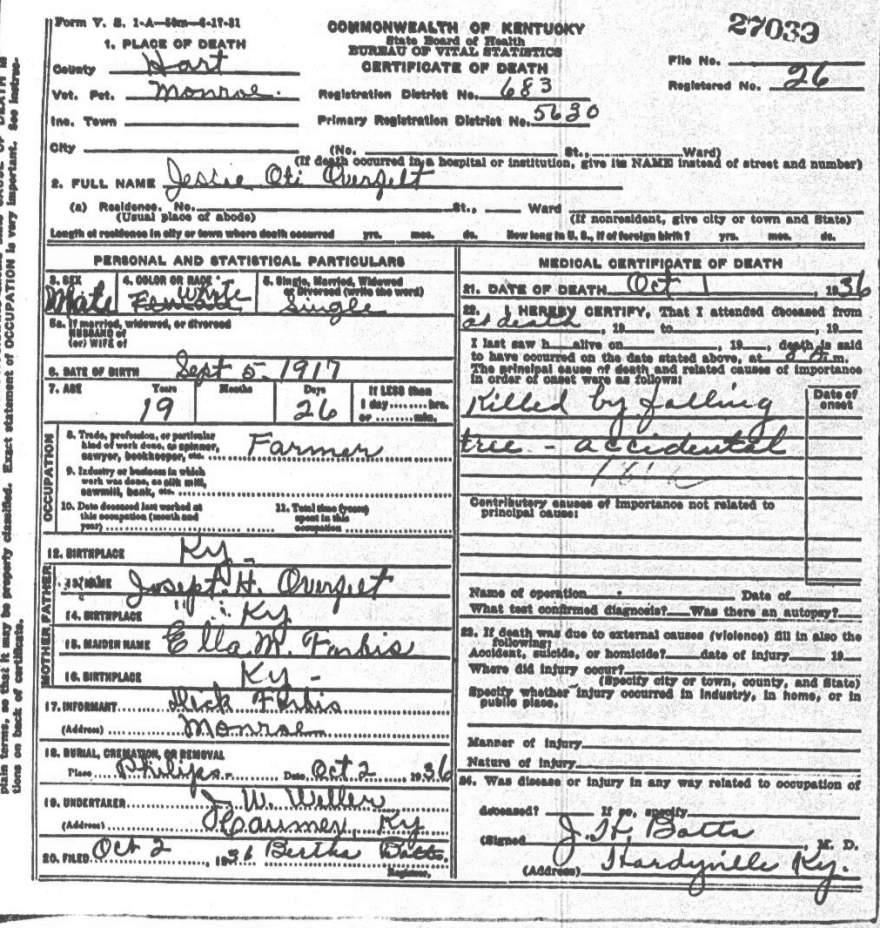 Form V. S. 1-A—50m—6-17-31
COMMONWEALTH OF KENTUCKY
State Board of Health
BUREAU OF VITAL STATISTICS
CERTIFICATE OF DEATH
27033
File No.
Registered No. 26
1. PLACE OF DEATH
County Hart
Vot. Pct. Monroe.
Inc. Town
City
Registration District No. 683
Primary Registration District No. 5630
(No. St., Ward)
(If death occurred in a hospital or institution, give its NAME instead of street and number)
2. FULL NAME Jessie Oti Overfelt
(a) Residence. No. St., Ward
(Usual place of abode)
(If nonresident, give city or town and State)
Length of residence in city or town where death occurred yrs. mos. ds. How long in U. S., if of foreign birth? yrs. mos. ds.
PERSONAL AND STATISTICAL PARTICULARS
3. SEX
Male
4. COLOR OR RACE
White
5. Single, Married, Widowed
or Divorced (write the word)
Single
5a. If married, widowed, or divorced
HUSBAND of
(or) WIFE of
6. DATE OF BIRTH Sept 5- 1917
7. AGE Years Months Days If LESS than
19 26 1 day ........ hrs.
or ........ min.
OCCUPATION
8. Trade, profession, or particular
kind of work done, as spinner,
sawyer, bookkeeper, etc. Farmer
9. Industry or business in which
work was done, as silk mill,
sawmill, bank, etc.
10. Date deceased last worked at
this occupation (month and
year)
11. Total time (years)
spent in this
occupation
12. BIRTHPLACE Ky-
FATHER
13. NAME Joseph H. Overfelt
14. BIRTHPLACE Ky
MOTHER
15. MAIDEN NAME Ella M. Forbis
16. BIRTHPLACE Ky-
17. INFORMANT Dick Forbis
(Address) Monroe
18. BURIAL, CREMATION, OR REMOVAL
Place Philips Date Oct 2 1936
19. UNDERTAKER J. W. Weller
(Address) Ky
20. FILED Oct 2, 1936 Bertha Batts.
Registrar.
MEDICAL CERTIFICATE OF DEATH
21. DATE OF DEATH Oct 1, 1936
22. I HEREBY CERTIFY, That I attended deceased from
at death, 19 to , 19
I last saw h alive on , 19 , death is said
to have occurred on the date stated above, at m.
The principal cause of death and related causes of importance
in order of onset were as follows:
Date of
onset
Killed by falling
tree - accidental
Contributory causes of importance not related to
principal cause:
Name of operation Date of
What test confirmed diagnosis? Was there an autopsy?
23. If death was due to external causes (violence) fill in also the
following:
Accident, suicide, or homicide? date of injury 19
Where did injury occur?
(Specify city or town, county, and State)
Specify whether injury occurred in industry, in home, or in
public place.
Manner of injury
Nature of injury
24. Was disease or injury in any way related to occupation of
deceased? If so, specify
(Signed J. H. Batts, M. D.
(Address) Hardyville Ky.
plain terms, so that it may be properly classified. Exact statement of OCCUPATION is very important. See instruc-
tions on back of certificate.